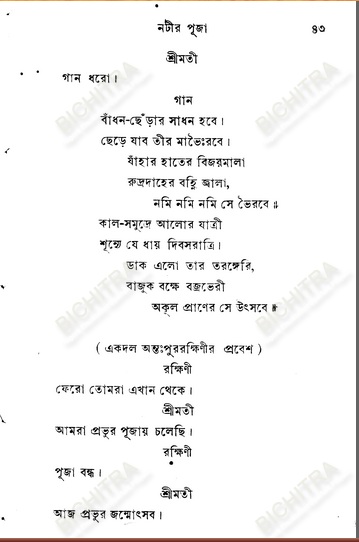 নটীর পূজা ৪৩
শ্রীমতী
গান ধরো।
গান
বাঁধন-ছেঁড়ার সাধন হবে।
ছেড়ে যাব তীর মাভৈঃরবে।
যাঁহার হাতের বিজয়মালা
রুদ্রদাহের বহ্নি জ্বালা,
নমি নমি নমি সে ভৈরবে॥
কাল-সমুদ্রে আলোর যাত্রী
শূন্যে যে ধায় দিবসরাত্রি।
ডাক এলো তার তরঙ্গেরি,
বাজুক বক্ষে বজ্রভেরী
অকূল প্রাণের সে উৎসবে॥
( একদল অন্তঃপুররক্ষিণীর প্রবেশ )
রক্ষিণী
ফেরো তোমরা এখান থেকে।
শ্রীমতী
আমরা প্রভুর পূজায় চলেছি।
রক্ষিণী
পূজা বন্ধ।
শ্রীমতী
আজ প্রভুর জন্মোৎসব।
BICHITRA
BICHITRA
BICHITRA
BICHITRA
BICHITRA
BICHITRA